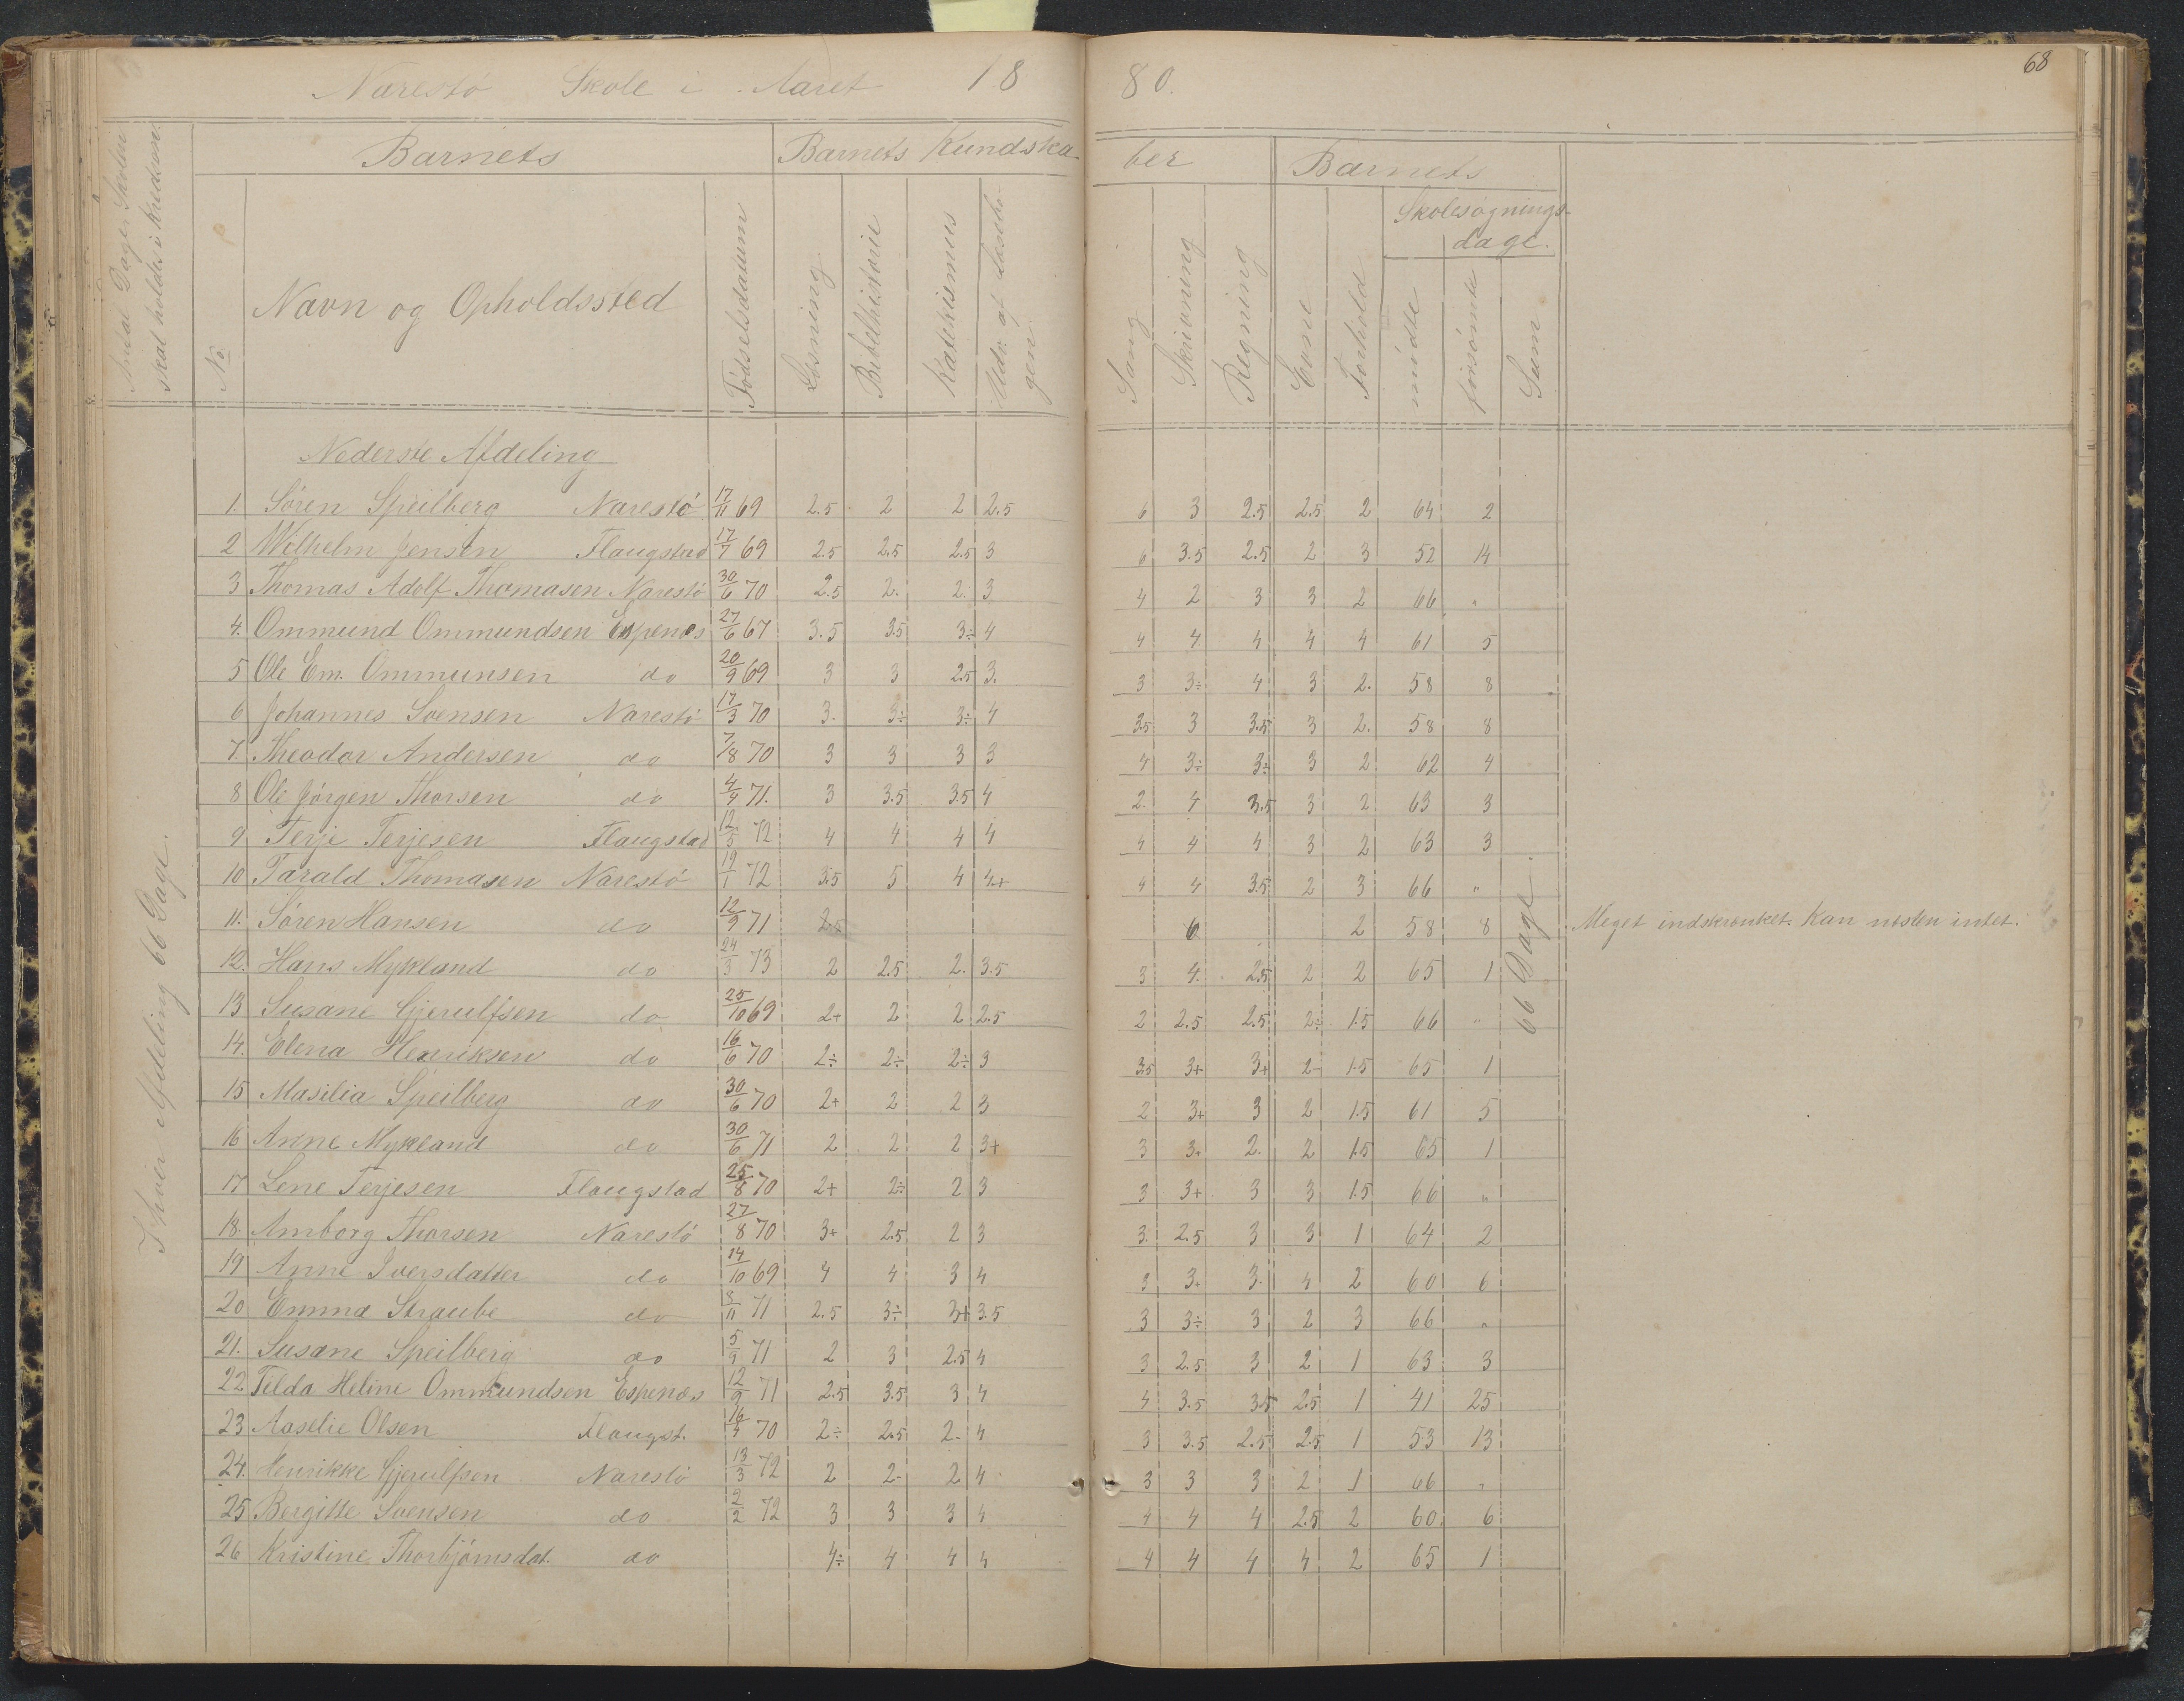 Narestø Skole i Aaret 1880.
68
Antal Dage, Skolen skal holdes i Kredsen.
Barnets
Barnets Kundskaber
Barnets
No
Navn og Opholdssted
Fødselsdatum
Læsning
Bibelhistorie
Katekismus
Udv. af Læsebogen.
Sang
Skrivning
Regning
Evne
Forhold
Skolesøgningsdage.
mødte
forsømte
Sum
Nederste Afdeling
1. Søren Speilberg Narestø 17/11 69 2.5 2 2 2.5 6 3 2.5 2.5 2 64 2
2 Wilhelm Jensen Flaugstad 17/7 69 2.5 2.5 2.5 3 6 3.5 2.5 2 3 52 14
3 Thomas Adolf Thomasen Narestø 30/6 70 2.5 2. 2. 3 4 2 3 3 2 66 "
4. Ommund Ommundsen Espenes 27/6 67 3.5 3.5 3÷ 4 4 4 4 4 4 61 5
5 Ole Em. Ommunsen do 20/9 69 3 3 2.5 3. 3 3÷ 4 3 2. 58 8
6 Johannes Svensen Narestø 17/3 70 3. 3÷ 3÷ 4 3.5 3 3.5 3 2. 58 8
7. Theodor Andersen do 7/8 70 3 3 3 3 4 3÷ 3÷ 3 2 62 4
8 Ole Jørgen Thorsen do 4/4 71. 3 3.5 3.5 4 2. 4 3.5 3 2 63 3
9 Terje Terjesen Flaugstad 12/5 72 4 4 4 4 4 4 4 3 2 63 3
10 Tarald Thomasen Narestø 19/1 72 3.5 5 4 4+ 4 4 3.5 2 3 66 "
11. Søren Hansen do 12/9 71 2.5 6 2 58 8 Meget indskrænket. Kan næsten intet.
12. Hans Mykland do 24/3 73 2 2.5 2. 3.5 3 4. 2.5 2 2 65 1
13 Susane Gjerulfsen do 25/10 69 2+ 2 2 2.5 2 2.5 2.5 2÷ 1.5 66 "
14. Elena Henriksen do 16/6 70 2÷ 2÷ 2÷ 3 3.5 3+ 3+ 2- 1.5 65 1
15 Masilia Speilberg do 30/6 70 2+ 2 2 3 2 3+ 3 2 1.5 61 5
16 Anne Mykland do 30/6 71 2 2 2 3+ 3 3+ 2. 2 1.5 65 1
17 Lene Terjesen Flaugstad 25/8 70 2+ 2÷ 2 3 3 3+ 3 3 1.5 66 "
18. Amborg Thorsen Narestø 27/8 70 3+ 2.5 2 3 3. 2.5 3 3 1 64 2
19 Anne Iversdatter do 14/10 69 4 4 3 4 3 3+ 3. 4 2 60 6
20 Emma Straube do 8/11 71 2.5 3÷ 3+ 3.5 3 3÷ 3 2 3 66 "
21. Susane Speilberg do 5/9 71 2 3 2.5 4 3 2.5 3 2 1 63 3
22 Telda Heline Ommundsen Espenæs 12/9 71 2.5 3.5 3 4 4 3.5 3.5 2.5 1 41 25
23 Aaselie Olsen Flaugst. 16/4 70 2÷ 2.5 2- 4 3 3.5 2.5 2.5 1 53 13
24. Henrikke Gjerulfsen Narestø 13/3 72 2 2- 2 4 3 3 3 2 1 66 "
25 Bergitte Svensen do 2/2 72 3 3 3 4 4 4 4 2.5 2 60 6
26 Kristine Thorbjørnsdat. do 4÷ 4 4 4 4 4 4 4 2 65 1
I hver Afdeling 66 Dage.
66 Dage